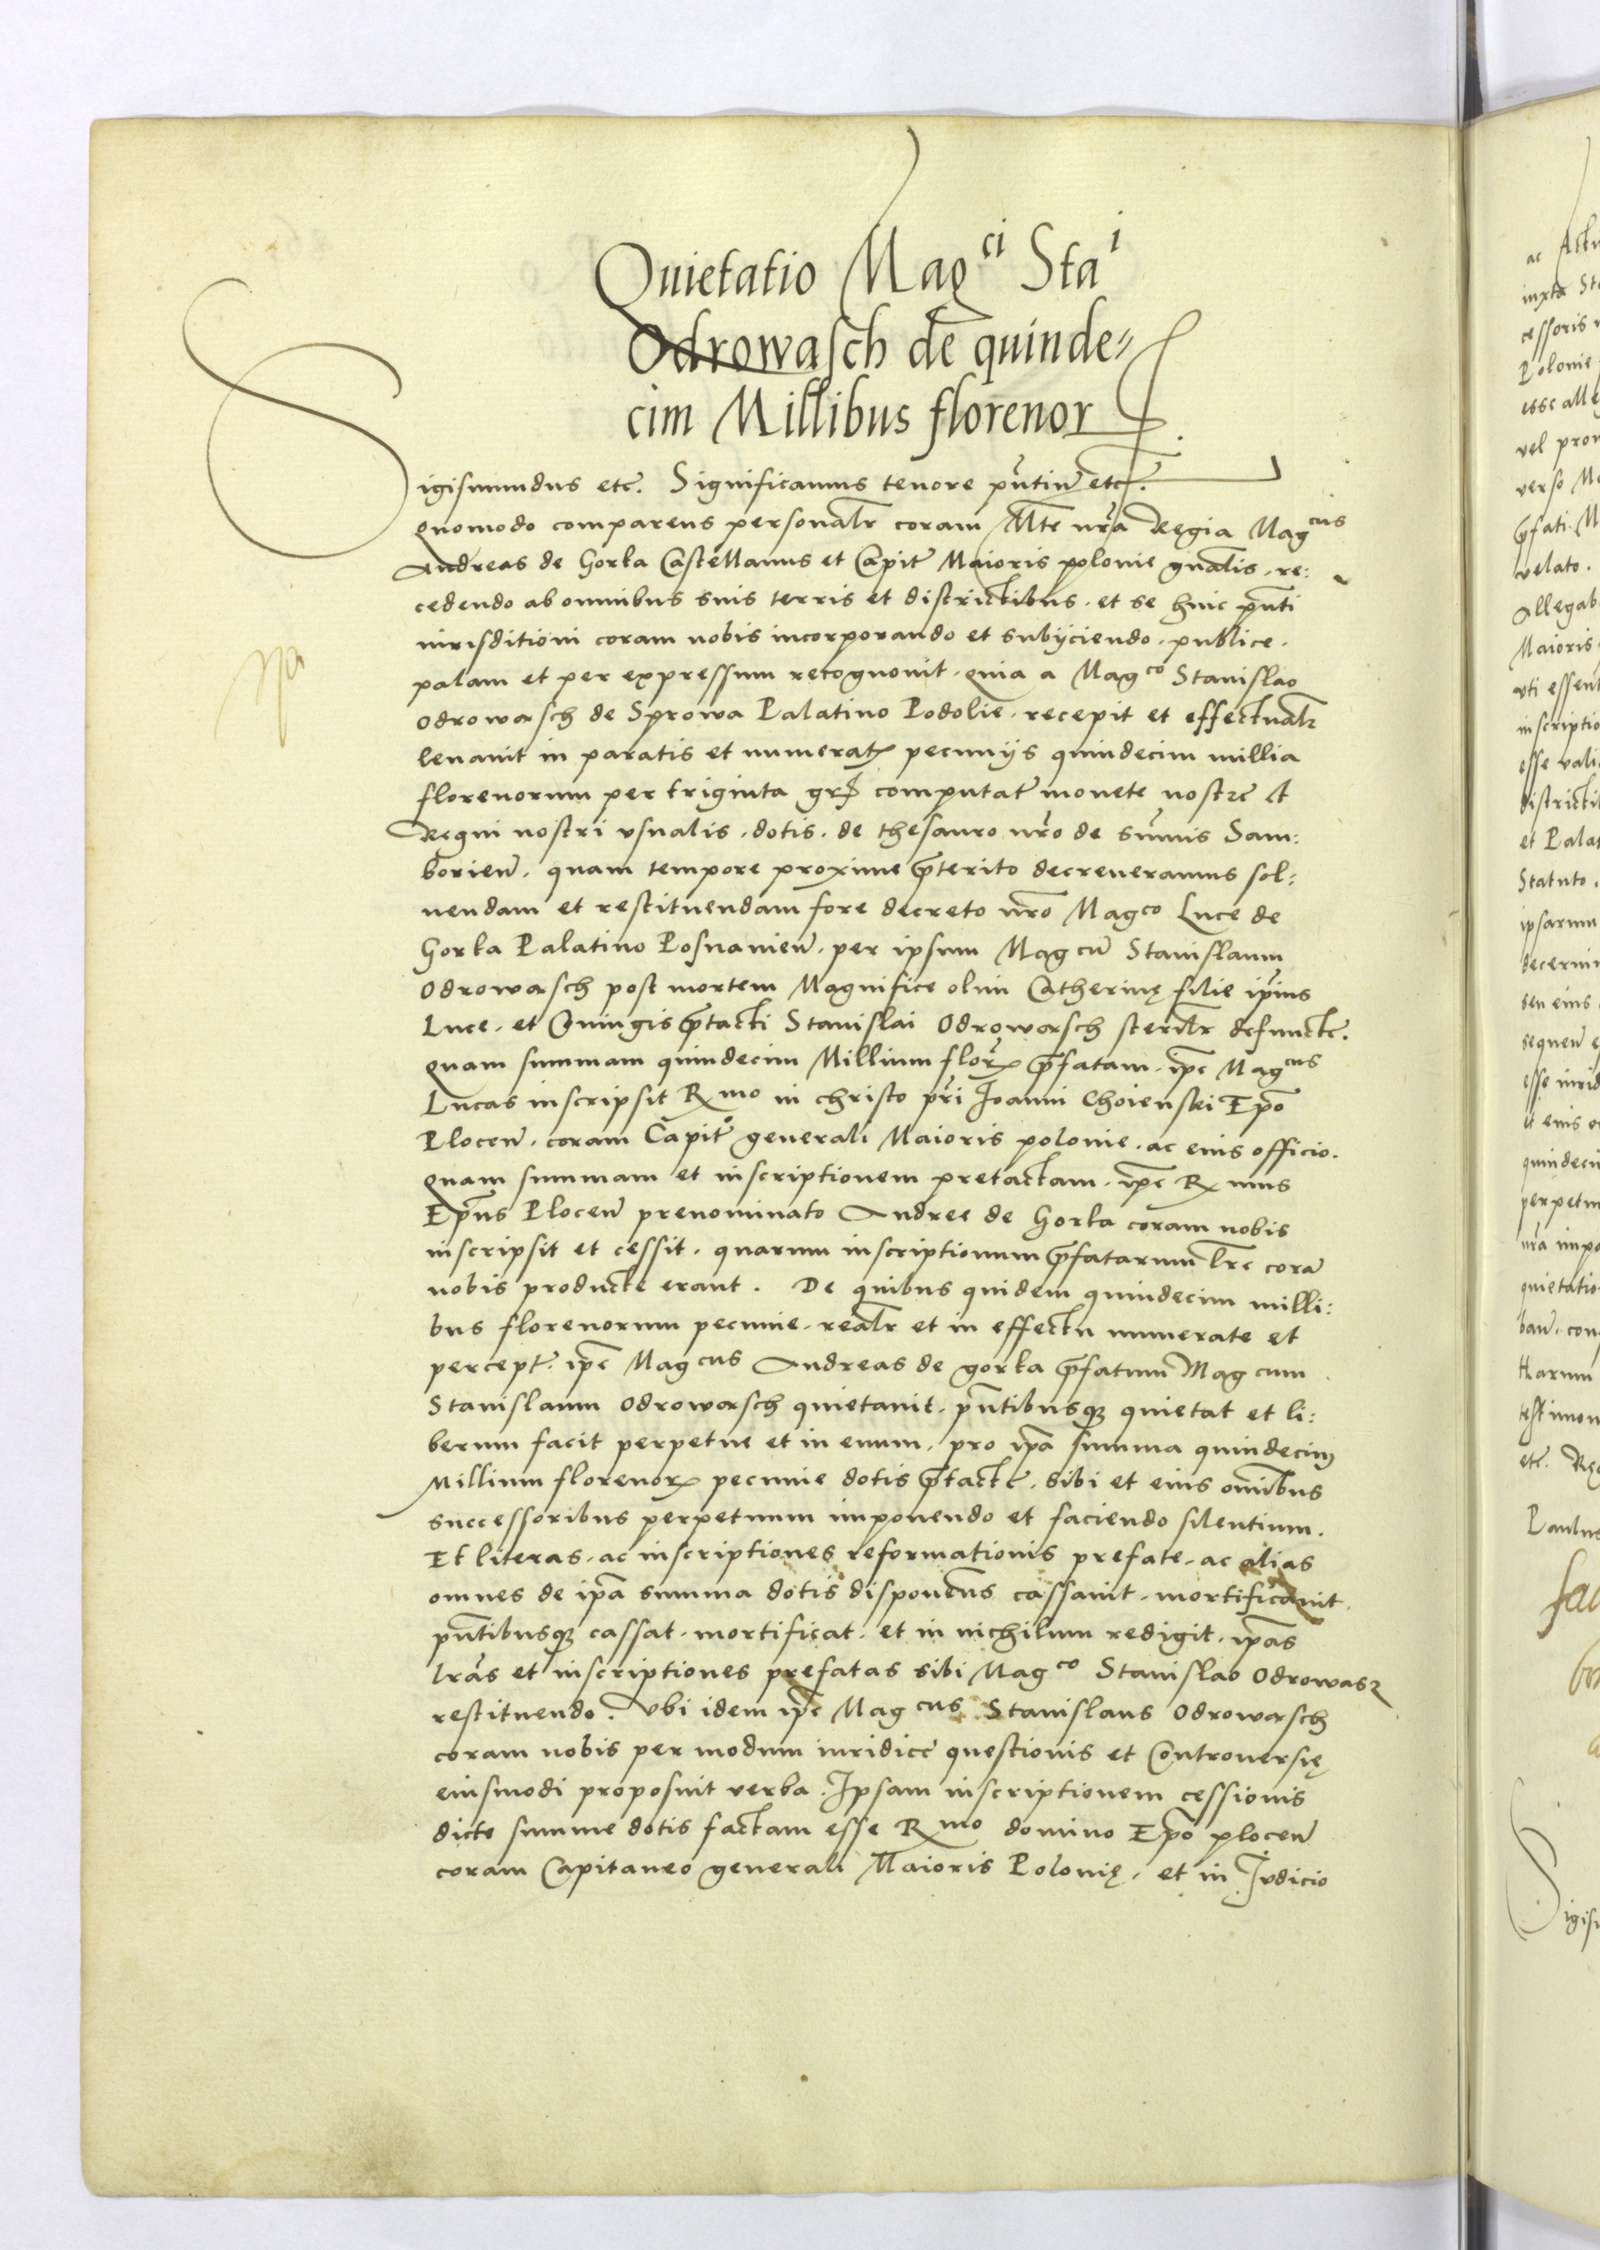 Quietatio Magci Stai
Odrowasch de quinde=
cim Millibus florenor
Sigismundus etc. Significamus tenore pntiu etc.
quomodo comparens personalr coram Mte nra Regia Magcus
Andreas de Gorka Castellanus et Capit Maioris polonie gnalis. re:
cedendo ab omnibus suis terris et districtibus. et se huic pnti
iurisditioni coram nobis incorporando et subijciendo. publice.
palam et per expressum recognouit. quia a Magco Stanislao
Odrowasch de Sprowa Palatino Podolie. recepit et effectualr
leuauit in paratis et numerat pecunijs quindecim millia
florenorum per triginta gr computat monete nostre et
Regni nostri vsualis. dotis. de thesauro nro de sumis Sam:
borien. quam tempore proxime pterito decreueramus sol:
uendam et restituendam fore decreto nro Magco Luce de
Gorka Palatino Posnanien. per ipsum Magcu Stanislaum
Odrowasch post mortem Magnifice olim Catherinę filie ipius
Luce. et Coniugis ptacti Stanislai Odrowasch sterilr defuncte.
quam summam quindecim Millium flor pfatam. ipe Magcus
Lucas inscripsit Rmo in christo pri Joanni Choienski Epo
Plocen. coram Capit generali Maioris polonie. ac eius officio.
quam summam et inscriptionem pretactam. ipe Rmus
Epus Plocen prenominato Andree de Gorka coram nobis
inscripsit et cessit. quarum inscriptionum pfatarum lre cora
nobis producte erant. De quibus quidem quindecim milli:
bus florenorum pecunie. realr et in effectu numerate et
percept. ipe Magcus Andreas de gorka pfatum Magcum
Stanislaum Odrowasch quietauit. pntibusq quietat et li:
berum facit perpetue et in euum. pro ipa summa quindecim
Millium florenor pecunie dotis ptacte. sibi et eius omibus
successoribus perpetuum imponendo et faciendo silentium.
Et literas. ac inscriptiones reformationis prefate. ac alias
omnes de ipa summa dotis disponens cassauit. mortificauit.
pntibusq cassat. mortificat. et in nichilum redigit. ipas
lras et inscriptiones prefatas sibi Magco Stanislao Odrowasz
restituendo. Vbi idem ipe Magcus Stanislaus Odrowasch
coram nobis per modum iuridice questionis et Controuersię
eiusmodi proposuit verba. Ipsam inscriptionem cessionis
dicte summe dotis factam esse Rmo domino Epo plocen
coram Capitaneo generali Maioris Polonię. et in Judicio